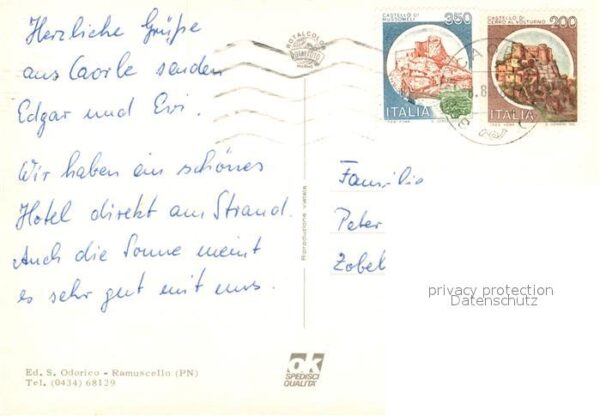 Herzliche Grüße
aus Caorle senden
Edgar und Evi.
Wir haben ein schönes
Hotel direkt am Strand.
Auch die Sonne meint
es sehr gut mit uns.
Ed. S. Odorico - Ramuscello (PN)
Tel. (0434) 68129
ROTALCOLOR
Riproduzione vietata
ok
SPEDISCI
QUALITA'
CASTELLO DI
MUSSOMELI
350
ITALIA
CASTELLO DI
CERRO AL VOLTURNO
200
ITALIA
Familie
Peter
Zobel
privacy protection
Datenschutz